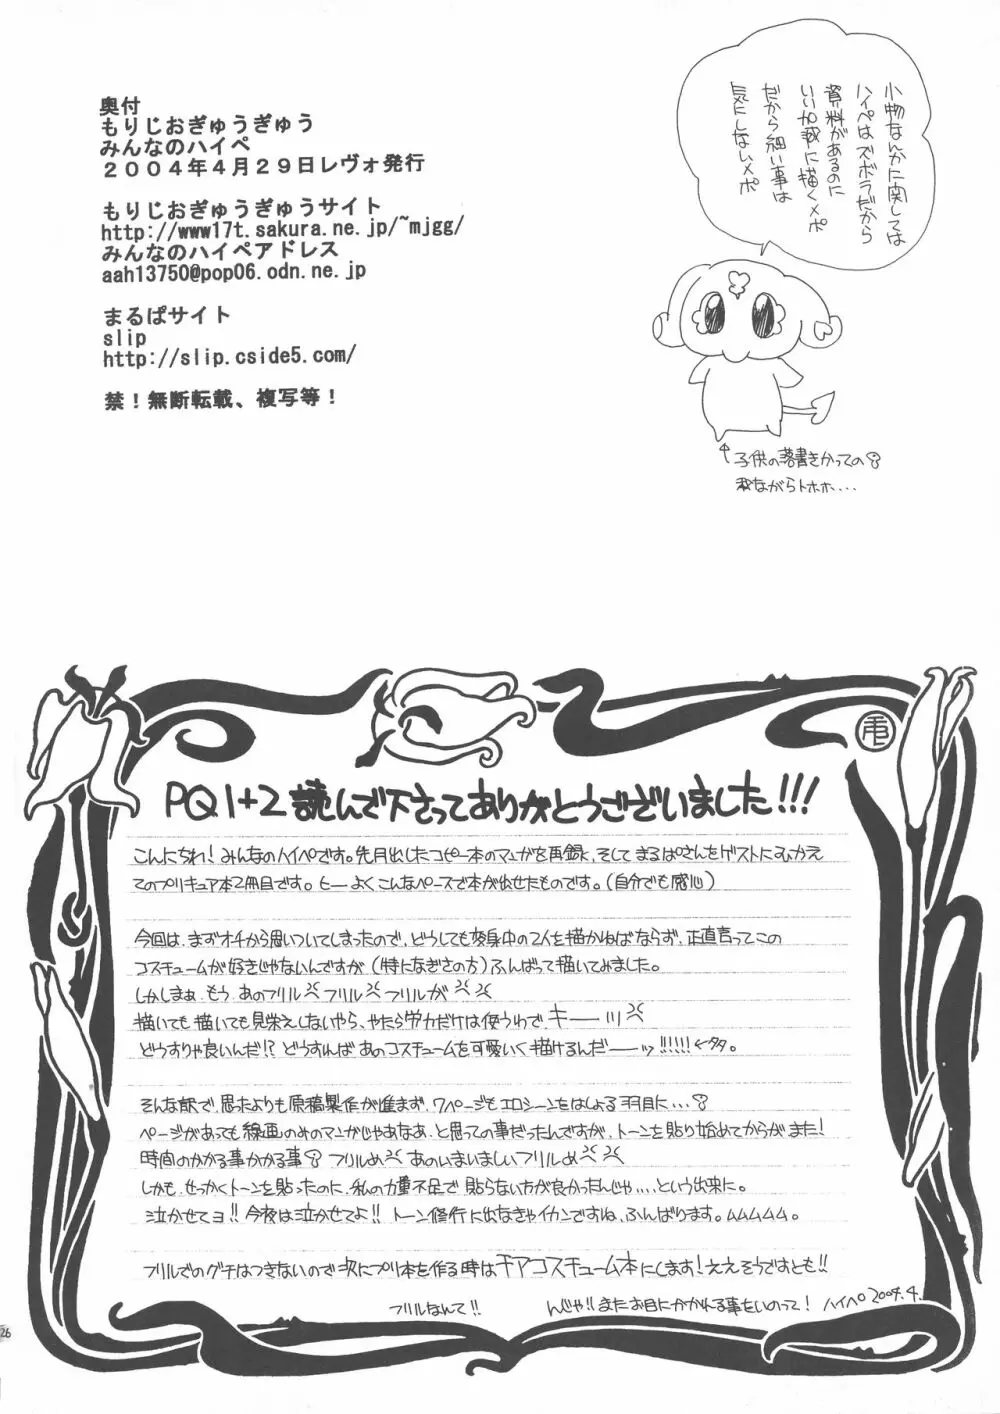 奥付
もりじおぎゅうぎゅう
みんなのハイペ
２００４年４月２９日レヴォ発行
もりじおぎゅうぎゅうサイト
http://www17t.sakura.ne.jp/~mjgg/
みんなのハイペアドレス
aah13750@pop06.odn.ne.jp
まるぱサイト
slip
http://slip.cside5.com/
禁！無断転載、複写等！
小物なんかに関しては
ハイペはズボラだから
資料があるのに
いい加減に描くメポ
だから細い事は
気にしないメポ
↑子供の落書きかっての
我ながらトホホ‥‥
PQ1+2 読んで下さってありがとうございました!!!
こんにちわ！みんなのハイペです。先月出したコピー本のマンガを再録、そしてまるぱさんをゲストにむかえ
てのプリキュア本2冊目です。ヒーよくこんなペースで本が出せたものです。（自分でも感心）
今回は、まずオチから思いついてしまったので、どうしても変身中の2人を描かねばならず、正直言ってこの
コスチュームが好きじゃないんですが（特になぎさの方）ふんばって描いてみました。
しかしまぁ、もう、あのフリルフリルフリルが
描いても描いても見栄えしないやら、やたら労力だけは使うわで キーーッ
どうすりゃ良いんだ!? どうすれば あのコスチュームを可愛いく描けるんだーーッ!!!!!!
そんな訳で、思たよりも原稿製作が進まず、7ページもエロシーンをはしょる羽目に‥‥
ページがあっても線画のみのマンガじゃあなあ、と思っての事だったんですが、トーンを貼り始めてからがまた！
時間のかかる事かかる事 フリルめ あのいまいましいフリルめ
しかも、せっかくトーンを貼ったのに、私の力量不足で貼らない方が良かったんじゃ‥‥という出来に。
泣かせてヨ!! 今夜は泣かせてよ!! トーン修行に出なきゃイカンですね、ふんばります。ムムムムム。
フリルでのグチはつきないので次にプリ本を作る時はギアコスチューム本にします！ええそうですとも!!
フリルなんて!!
んじゃ!!またお目にかかれる事をいのって！ ハイペ 2004.4.
26